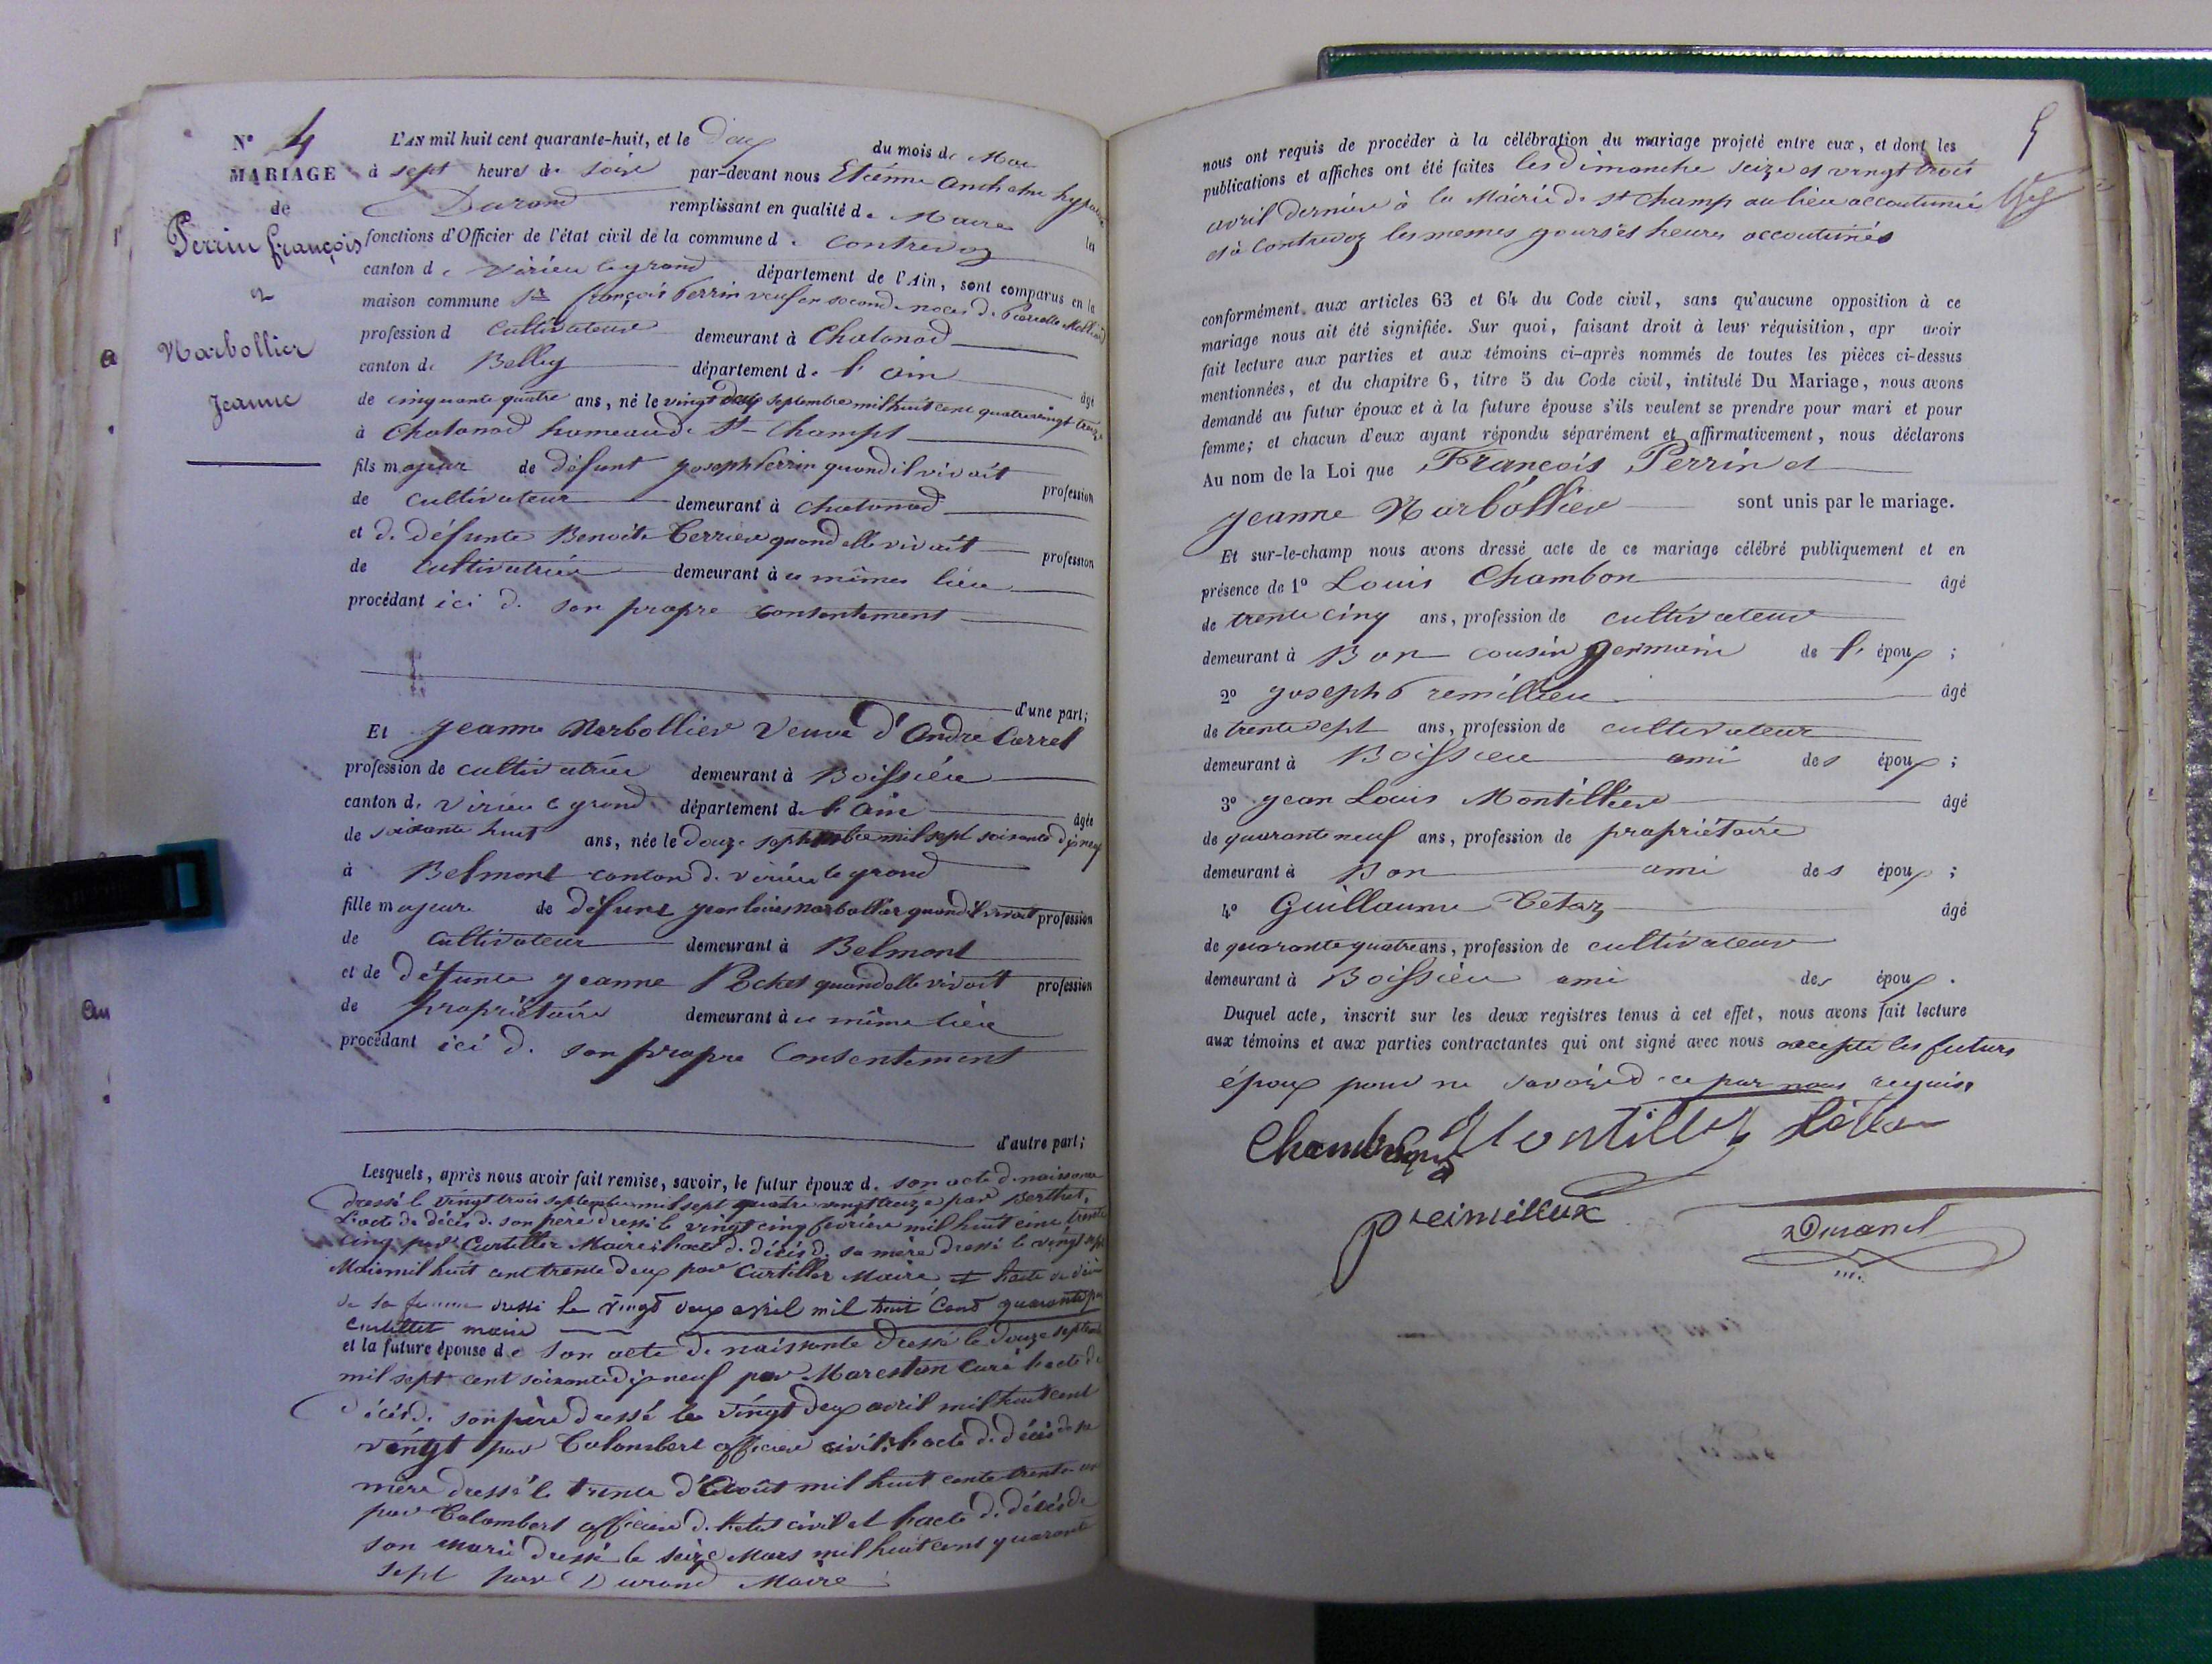 N° 4
MARIAGE
de
Perrin françois
et
Narbollier
Jeanne
L'AN mil huit cent quarante-huit, et le deux du mois de Mai
à sept heures du soir par-devant nous Etienne Anthelme hypolite
Durand remplissant en qualité de Maire les
fonctions d'Officier de l'état civil de la commune de Contrevoz
canton de virieu le grand département de l'Ain, sont comparus en la
maison commune Sr françois Perrin veuf en seconde noces de Pierrette
profession d cultivateur demeurant à Chatonod
canton de Belley département de l'ain âgé
de cinquante quatre ans, né le vingt deux septembre mil huit cent quatre vingt treize
à Chatonod hameau de St-Champt
fils majeur de défunt joseph Perrin quand il vivait profession
de cultivateur demeurant à chatonod
et de défunte Benoite Terrier quand elle vivait profession
de cultivatrice demeurant à ce même lieu
procédant ici de son propre consentement
d'une part;
Et jeanne Narbollier veuve d'André Carrel
profession de cultivatrice demeurant à Boissieu
canton de virieu le grand département de l'ain âgée
de soixante huit ans, née le douze septembre mil sept soixante dix neuf
à Belmont canton de virieu le grand
fille majeure de défunt jean louis narbollier quand il vivait profession
de cultivateur demeurant à Belmont
et de défunte jeanne Pochet quand elle vivait profession
de propriétaire demeurant à ce même lieu
procédant ici de son propre consentement
d'autre part;
Lesquels, après nous avoir fait remise, savoir, le futur époux de son acte de naissance
dressé le vingt trois septembre mil sept quatre vingt treize par Berthet,
l'acte de décès de son père dressé le vingt cinq février mil huit cent trente
cinq par Curtillet Maire; l'acte de décès de sa mère dressé le vingt sept
Mai mil huit cent trente deux par Curtillet Maire et l'acte de décès
de sa femme dressé le vingt deux avril mil huit cent quarante par
Curtillet maire
et la future épouse de son acte de naissance dressé le douze septembre
mil sept cent soixante dix neuf par Marestan curé l'acte de
décès de son père dressé le vingt deux avril mil huit cent
vingt par Colombert officier civil; l'acte de décès de sa
mère dressé le trente d'Août mil huit cente trente un
par Colombert officier de l'état civil et l'acte de décès de
son mari dressé le seize Mars mil huit cent quarante
sept par Durand Maire
5
nous ont requis de procéder à la célébration du mariage projeté entre eux, et dont les
publications et affiches ont été faites les dimanche seize et vingt trois
avril dernier à la Mairie de st champ au lieu accoutumé
et à Contrevoz les memes jours et heures accoutumés
conformément aux articles 63 et 64 du Code civil, sans qu'aucune opposition à ce
mariage nous ait été signifiée. Sur quoi, faisant droit à leur réquisition, apr avoir
fait lecture aux parties et aux témoins ci-après nommés de toutes les pièces ci-dessus
mentionnées, et du chapitre 6, titre 5 du Code civil, intitulé Du Mariage, nous avons
demandé au futur époux et à la future épouse s'ils veulent se prendre pour mari et pour
femme; et chacun d'eux ayant répondu séparément et affirmativement, nous déclarons
Au nom de la Loi que François Perrin et
jeanne Narbollier sont unis par le mariage.
Et sur-le-champ nous avons dressé acte de ce mariage célébré publiquement et en
présence de 1° Louis Chambon âgé
de trente cinq ans, profession de cultivateur
demeurant à Bon cousin germain de l' époux ;
2° joseph Premillieu âgé
de trente sept ans, profession de cultivateur
demeurant à Boissieu ami des époux ;
3° jean Louis Montillier âgé
de quarante neuf ans, profession de propriétaire
demeurant à Bon ami des époux ;
4° Guillaume Tetaz âgé
de quarante quatre ans, profession de cultivateur
demeurant à Boissieu ami des époux .
Duquel acte, inscrit sur les deux registres tenus à cet effet, nous avons fait lecture
aux témoins et aux parties contractantes qui ont signé avec nous excepté les futurs
époux pour ne savoir de ce par nous requis.
Montillet
preimilieux
Durand